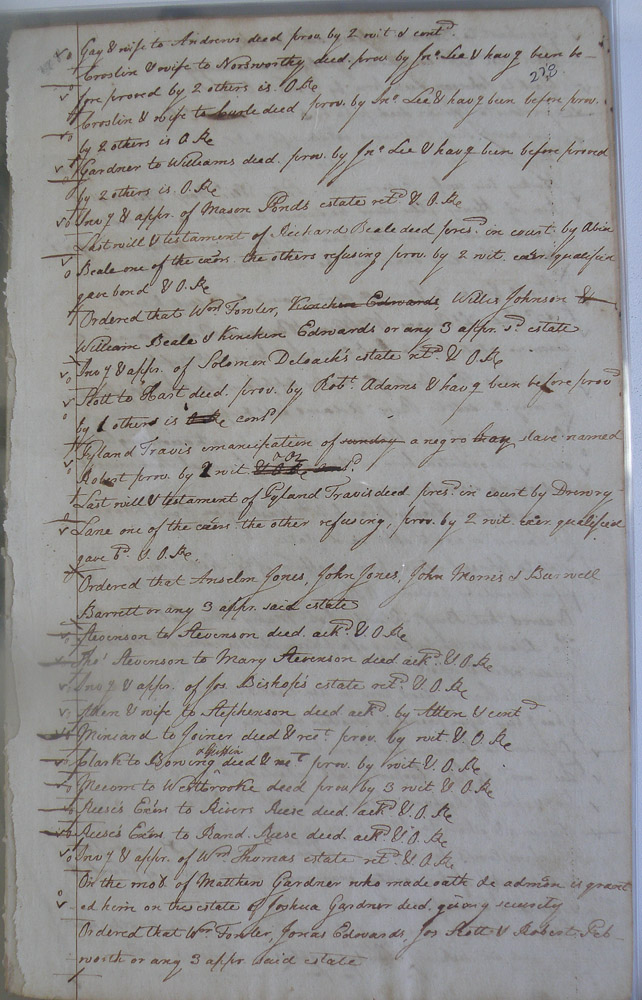 Gay & wife to Andrews deed prov. by 2 wit & contd.
Croslin & wife to Norsworthy deed. prov by Jno. Lee & havg been be-
278
fore proved by 2 others is. O. Re
Croslin & wife to deed, prov. by Jno Lee & havg been before prov.
by 2 others is O Re
Gardner to Williams deed. prov. by Jno Lee & havg been before proved
by 2 others is. O. Re
Invy & appr. of Mason Ponds estate retd. & O. Re
Last will & testament of Richard Beale deed presd. in court by Abin
Beale one of the exors. the others refusing prov. by 2 wit. exor. qualified
gave bond & O. Re
Ordered that Wm Fowler, Kinchen Edwards, Willis Johnson &
William Beale & Kinchen Edwards or any 3 appr. sd. estate
Invy & appr. of Solomon Deloach's estate retd. & O. Re
Stott to Hart deed. prov. by Robt. Adams & havg been before provd
by 1 others is O Re contd
Pyland Travis emancipation of sunday a negro slave named
Robert prov. by 2 wit. & O. Re
Last will & testament of Pyland Travis deed. presd. in court by Drewry
Lane one of the exors. the other refusing, prov. by 2 wit. exor. qualified
gave bd. & O. Re.
Ordered that Anselm Jones, John Jones, John Morris & Burwell
Barrett or any 3 appr. said estate
Stevenson to Stevenson deed. ackd. & O. Re
Thos. Stevenson to Mary Stevenson deed ackd. & O. Re
Invy & appr. of Jos. Bishop's estate retd. & O. Re
Atten & wife to Stephenson deed ackd. by Atten & contd
Miniard to Joiner deed & rect. prov. by wit & O. Re
Clark to Bowing deed & rect. prov. by wit & O. Re
Mecom to Westbrooke deed prov. by 3 wit & O. Re
Reese's Exors to Rivers Reese deed. ackd. & O. Re
Reese's Exors to Rand. Reese deed. ackd. & O. Re
Invy & appr. of Wm Thomas estate retd. & O. Re
On the mot. of Matthew Gardner who made oath &c admon is grant
ed him on the estate of Joshua Gardner deed. giving security
Ordered that Wm. Fowler, Jonas Edwards, Jos Stott & Robert Peb-
worth or any 3 appr said estate